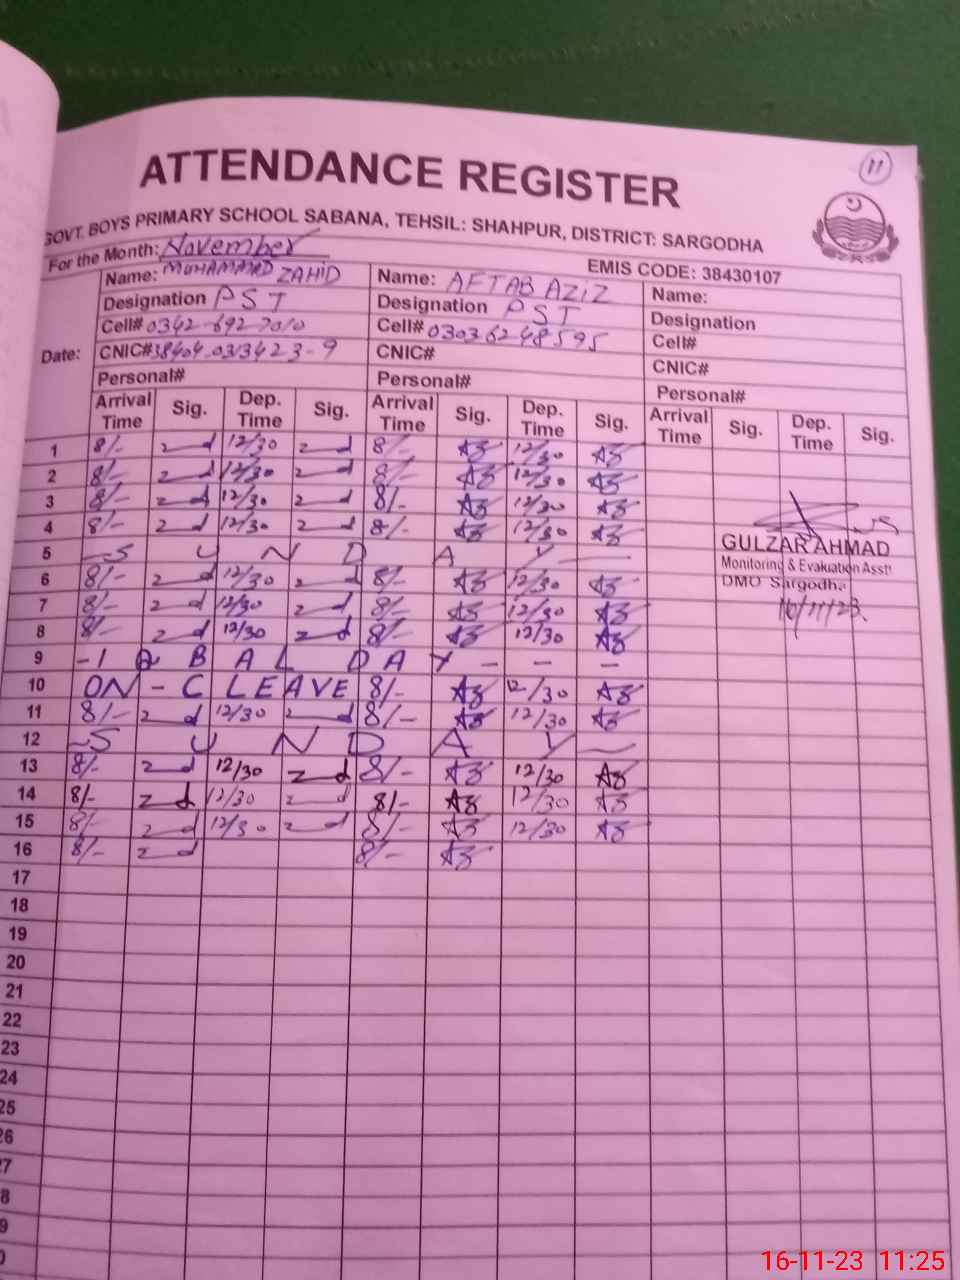 11
ATTENDANCE REGISTER
GOVT. BOYS PRIMARY SCHOOL SABANA, TEHSIL: SHAHPUR, DISTRICT: SARGODHA
For the Month: November
EMIS CODE: 38430107
Date:
Name: MUHAMMAD ZAHID Name: AFTAB AZIZ Name:
Designation PST Designation PST Designation
Cell# 0342-692-7010 Cell# 03036248595 Cell#
CNIC# CNIC# CNIC#
Personal# Personal# Personal#
Arrival Time Sig. Dep. Time Sig. Arrival Time Sig. Dep. Time Sig. Arrival Time Sig. Dep. Time Sig.
1 8/- 12/30 8/- 12/30
2 8/- 12/30 8/- 12/30
3 8/- 12/30 8/- 12/30
4 8/- 12/30 8/- 12/30
5 SUNDAY
6 8/- 12/30 8/- 12/30
7 8/- 12/30 8/- 12/30
8 8/- 12/30 8/- 12/30
9 - IQBAL DAY - - -
10 ON - C LEAVE 8/- 12/30
11 8/- 12/30 8/- 12/30
12 SUNDAY
13 8/- 12/30 8/- 12/30
14 8/- 12/30 8/- 12/30
15 8/- 12/30 8/- 12/30
16 8/- 8/-
17
18
19
20
21
22
23
24
25
26
27
8
9
0
GULZAR AHMAD
Monitoring & Evaluation Asstt
DMO Sargodha
16/11/23
16-11-23 11:25